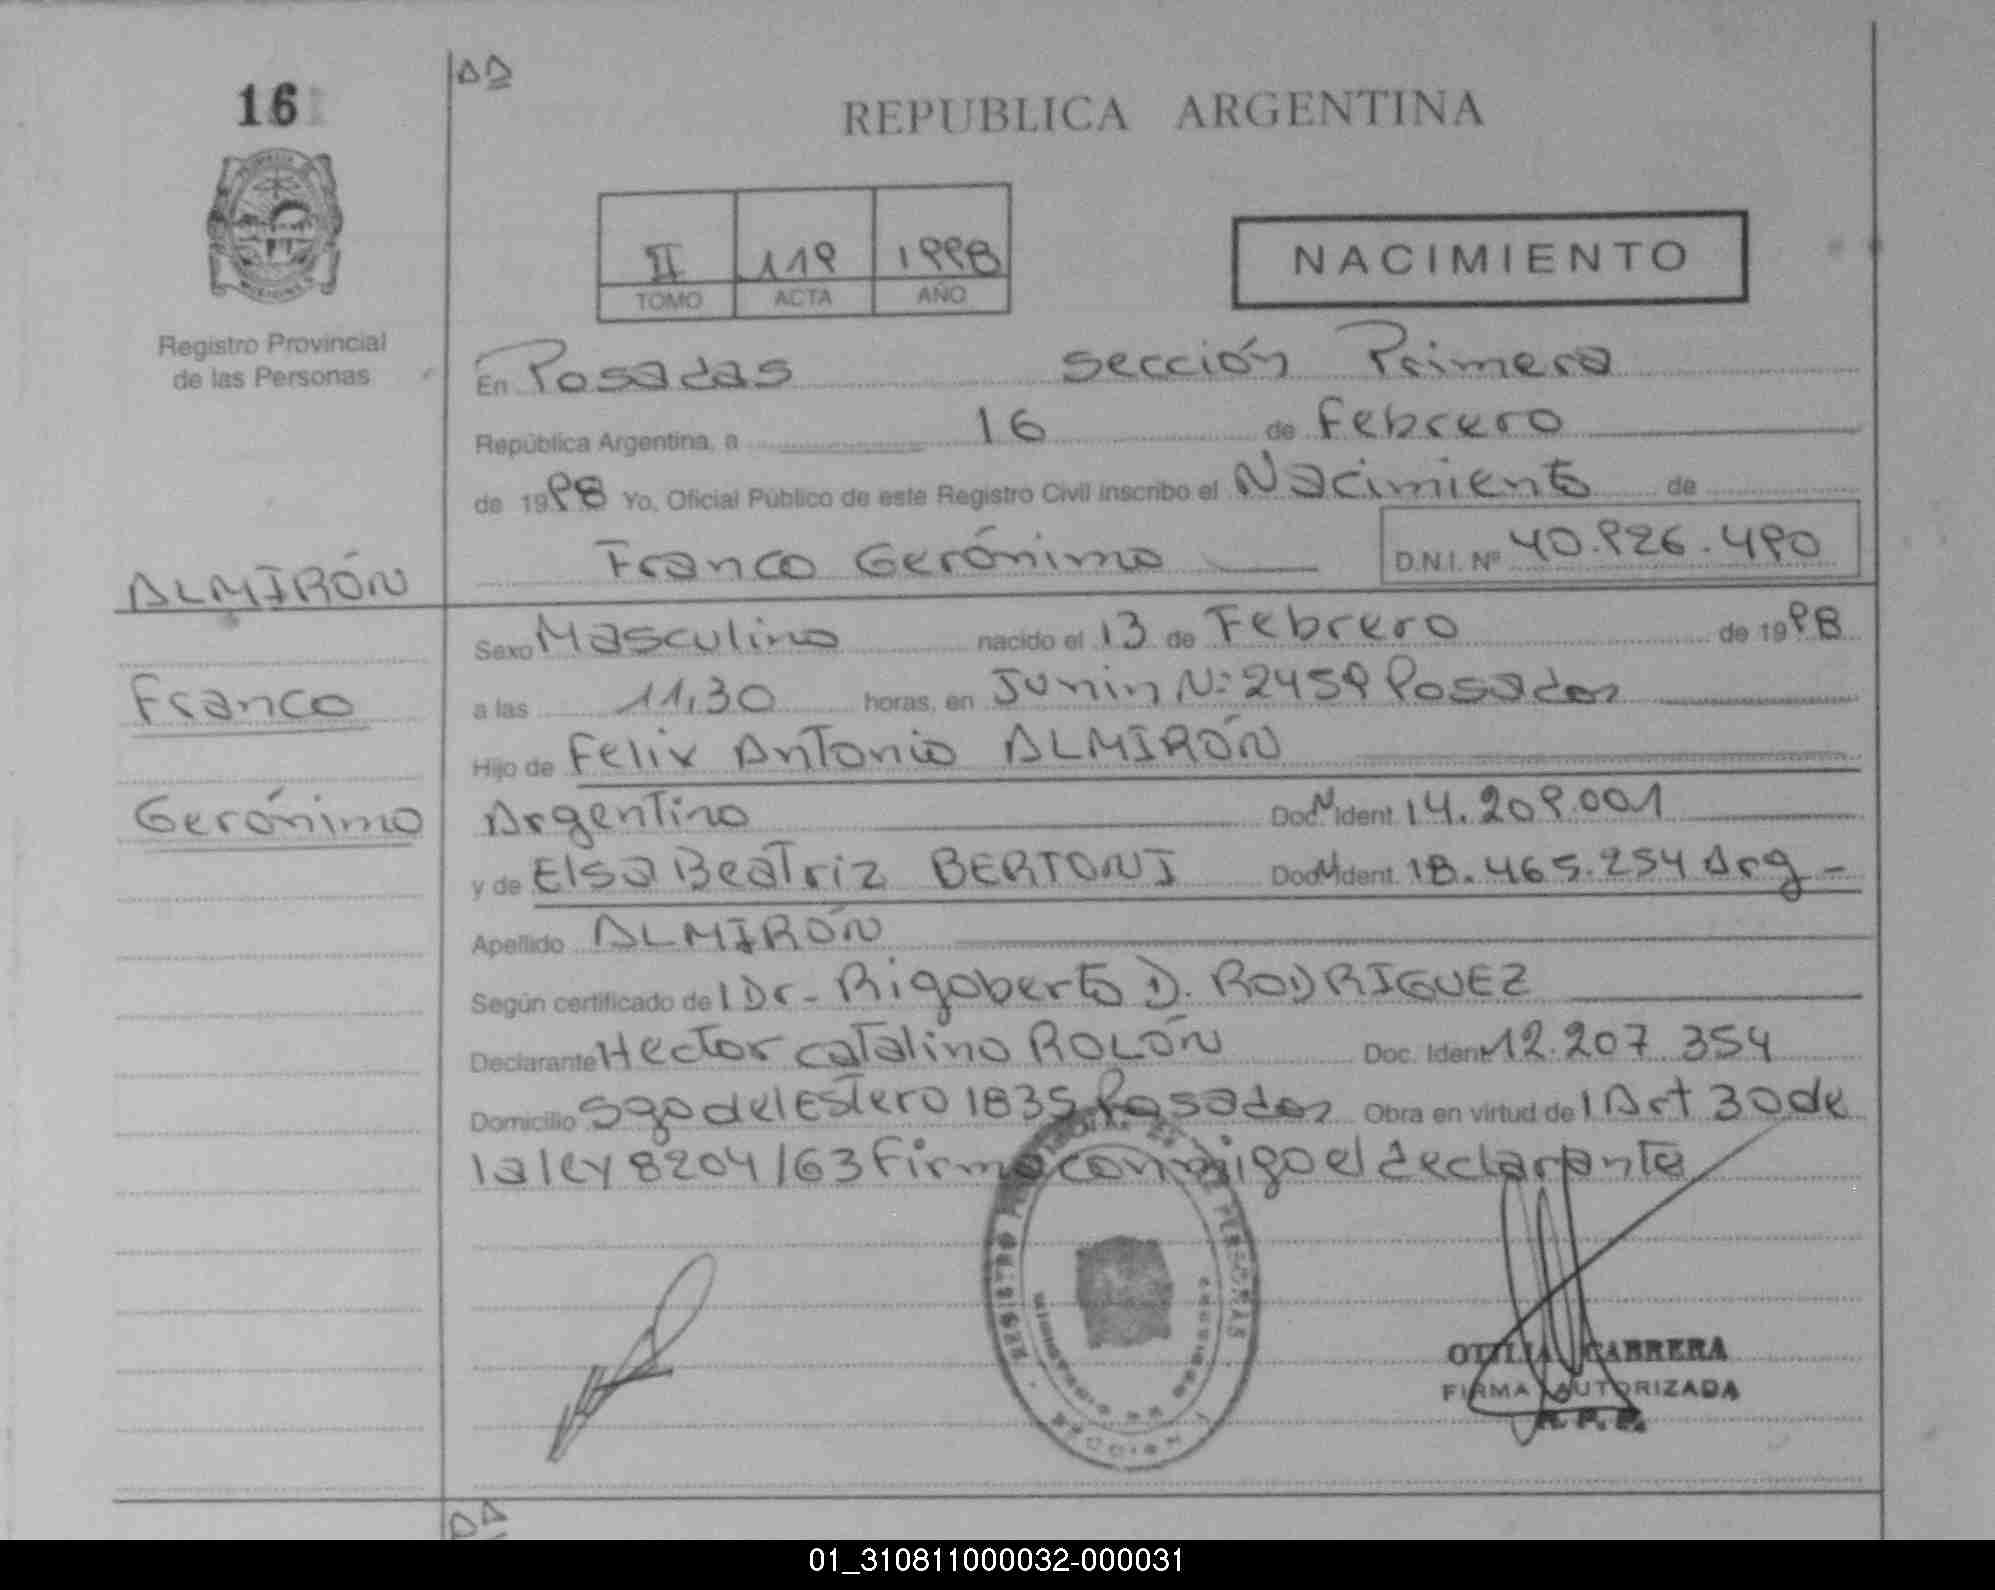 16
REPUBLICA ARGENTINA
II 119 1998
TOMO ACTA AÑO
NACIMIENTO
Registro Provincial
de las Personas
En Posadas sección Primera
República Argentina, a 16 de Febrero
de 1998 Yo, Oficial Público de este Registro Civil inscribo el Nacimiento de
Franco Gerónimo D.N.I. Nº 40.926.490
ALMIRÓN
Franco
Gerónimo
Sexo Masculino nacido el 13 de Febrero de 1998
a las 11,30 horas, en Junin Nº 2459 Posadas
Hijo de Felix Antonio ALMIRÓN
Argentino Doc. Ident. 14.209.001
y de Elsa Beatriz BERTONI Doc. Ident. 18.465.254 Arg -
Apellido ALMIRÓN
Según certificado de l Dr - Rigoberto D. RODRIGUEZ
Declarante Hector catalino ROLÓN Doc. Ident. 12.207 354
Domicilio Sgo del Estero 1835 Posadas Obra en virtud de l Art 30 de
la ley 8204/63 Firma conmigo el declarante
REGISTRO PERSONAS
SECCION 1
OTILIA CABRERA
FIRMA AUTORIZADA
R. P. P.
01_310811000032-000031